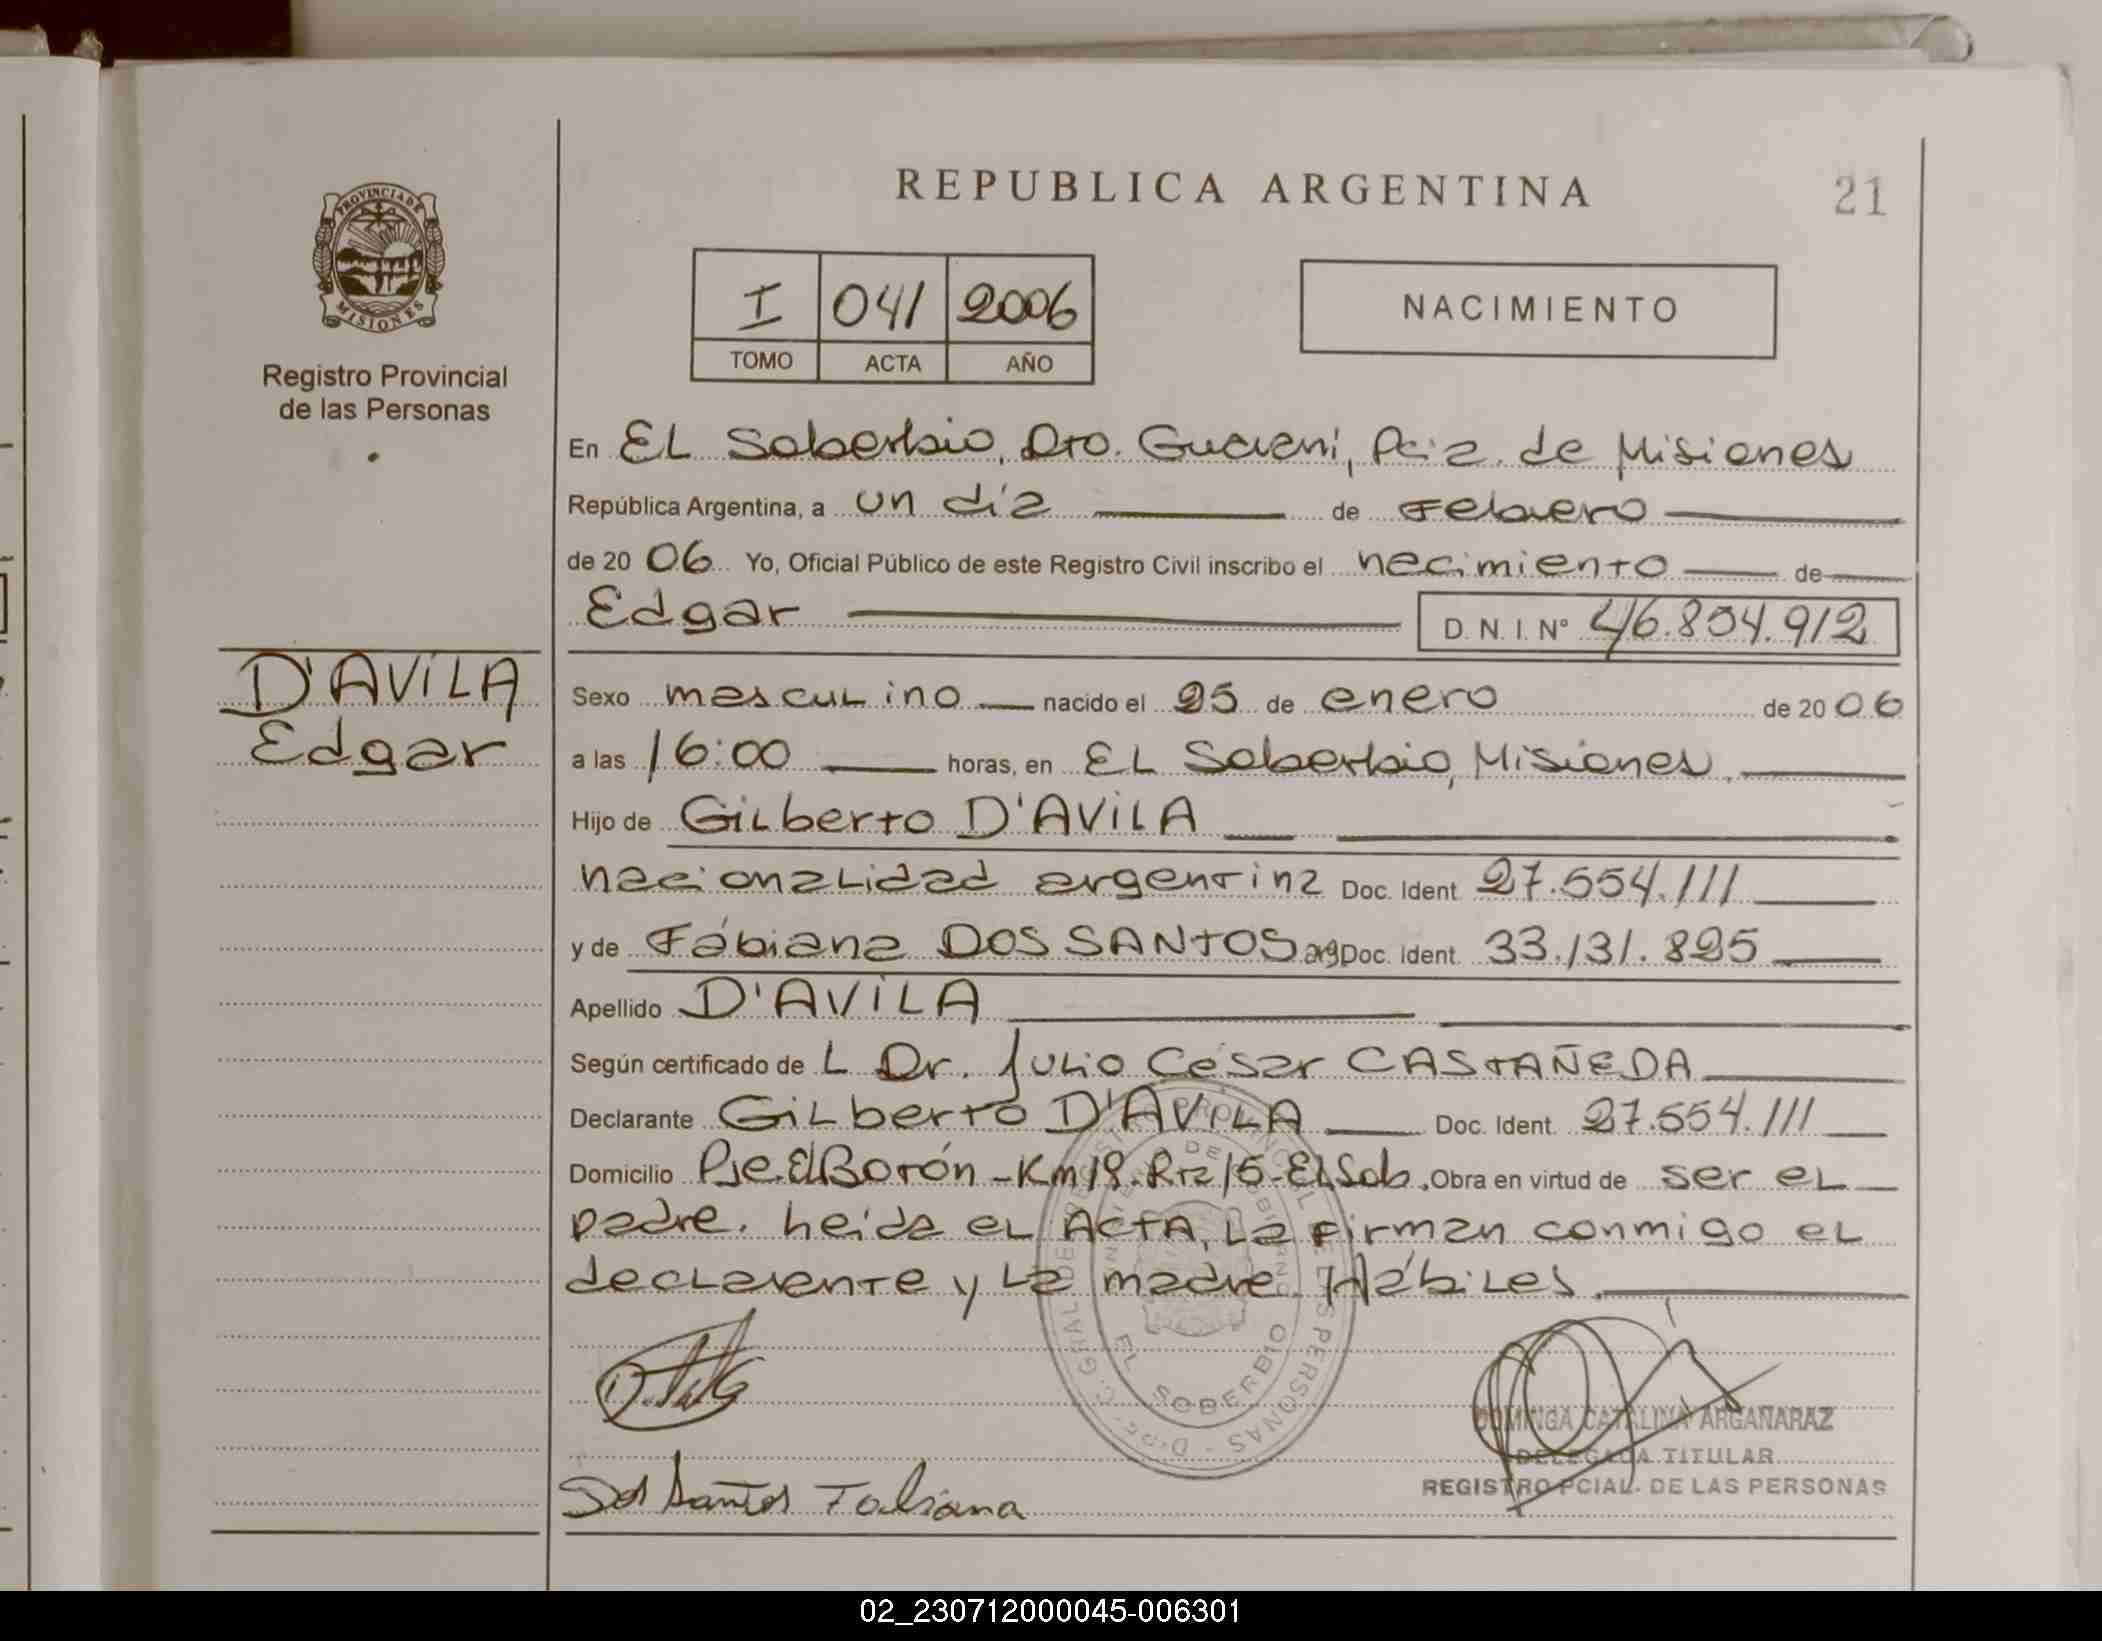 REPUBLICA ARGENTINA
21
PROVINCIA DE
MISIONES
Registro Provincial
de las Personas
I 041 2006
TOMO ACTA AÑO
NACIMIENTO
En EL Soberbio, Dto. Guarani, Pcia. de Misiones
República Argentina, a un día de Febrero
de 2006 Yo, Oficial Público de este Registro Civil inscribo el nacimiento de
Edgar D. N. I. Nº 46.804.912
D'AVILA
Edgar
Sexo masculino nacido el 25 de enero de 2006
a las 16:00 horas, en EL Soberbio, Misiones.
Hijo de Gilberto D'AVILA
nacionalidad argentina Doc. Ident. 27.554.111
y de Fabiana DOS SANTOS arg Doc. Ident. 33.131.825
Apellido D'AVILA
Según certificado de L Dr. Julio César CASTAÑEDA
Declarante Gilberto D'AVILA Doc. Ident. 27.554.111
Domicilio Pje. El Botón - Km 18. Rta 15 - El Sob. Obra en virtud de ser el
padre. Leida el ACTA, La Firman conmigo el
declarante y La madre. Hábiles.
EL SOBERBIO
DOMINGA CATALINA ARGAÑARAZ
DELEGADA TITULAR
REGISTRO PCIAL. DE LAS PERSONAS
Dos Santos Fabiana
02_230712000045-006301